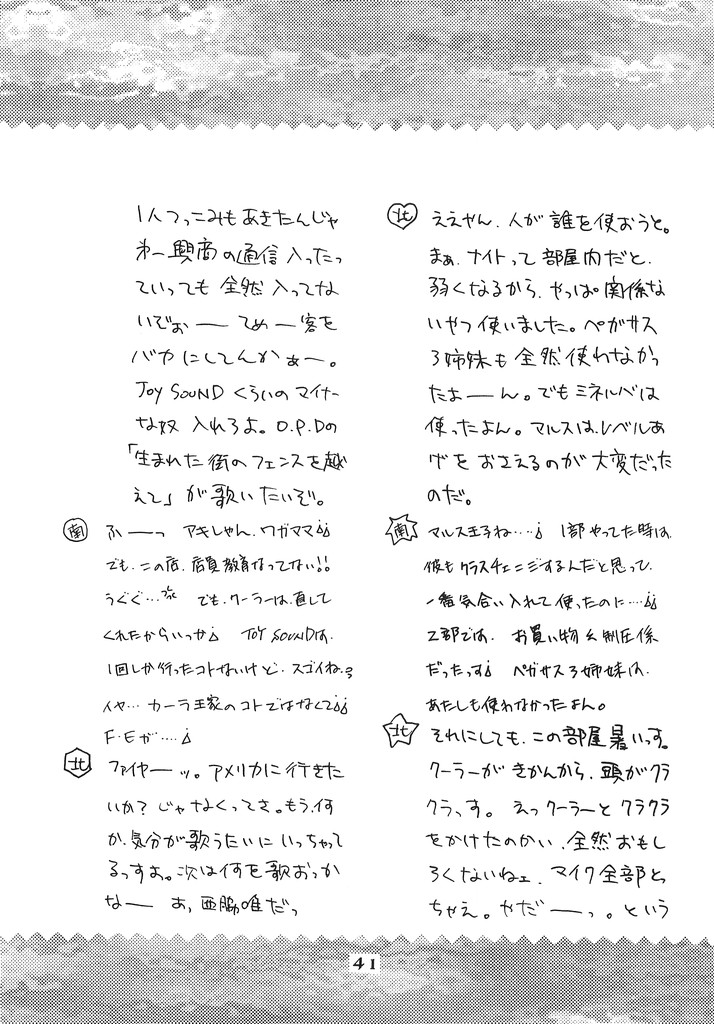 北 ええやん、人が誰を使おうと。
まぁ、ナイトって部屋内だと、
弱くなるから、やっぱ関係な
いやつ使いました。ペガサス
3姉妹も全然使わなかっ
たよーーん。でもミネルバは
使ったよん。マルスは、レベルあ
げをおさえるのが大変だった
のだ。
南 マルス王子ね‥‥、 1部やってた時は、
彼もクラスチェンジするんだと思って、
一番気合い入れて使ったのに‥‥
2部では、お買い物&制圧係
だったっす ペガサス3姉妹は、
あたしも使わなかったよん。
北 それにしても、この部屋暑いっす。
クーラーがきかんから、頭がクラ
クラっす。えっクーラーとクラクラ
をかけたのかい、全然おもし
ろくないねェ、マイク全部とっ
ちゃえ。やだーーっ。という
1人つっこみもあきたんじゃ
わー興商の通信入ったっ
ていっても全然入ってな
いぞぉーー てめー客を
バカにしてんかぁー。
JOY SOUNDくらいのマイナー
な奴入れろよ。O.P.Dの
「生まれた街のフェンスを越
えて」が歌いたいぞ。
南 ふーーっ アキしゃん、ワガママ
でも、この店、店員教育なってない!!
うぐぐ… でも、クーラーは、直して
くれたからいっか JOY SOUNDは、
1回しか行ったコトないけど、スゴイね。
イヤ… カーラ王家のコトではなくて
F・Eが‥‥
北 ファイヤーーッ。アメリカに行きた
いか？じゃなくってさ。もう、何
か、気分が歌うたいにいっちゃって
るっすよ。次は何を歌おっか
なーー あ、西脇唯だっ
41